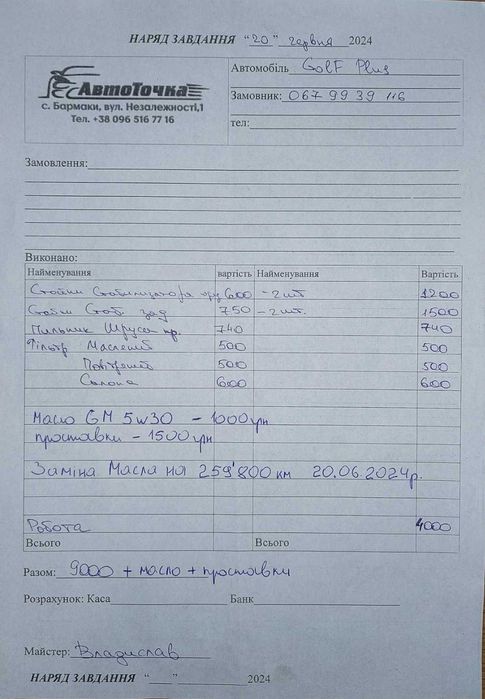 НАРЯД ЗАВДАННЯ “20” червня 2024
АвтоТочка
с. Бармаки, вул. Незалежності,1
Тел. +38 096 516 77 16
Автомобіль Golf Plus
Замовник: 067 99 39 116
тел:
Замовлення:
Виконано:
Найменування вартість Найменування Вартість
Стойки Стабилизатора 600 - 2 шт 1200
Стойки Стаб. зад 750 - 2 шт. 1500
Пильник Шруса пр. 740 740
Фільтр Маслений 500 500
Повітряний 500 500
Салона 600 600
Масло GM 5w30 - 1000 грн
проставки - 1500 грн
Заміна Масла на 259'800 км 20.06.2024р.
Робота 4000
Всього Всього
Разом: 9000 + масло + проставки
Розрахунок: Каса Банк
Майстер: Владислав
НАРЯД ЗАВДАННЯ “ ” 2024